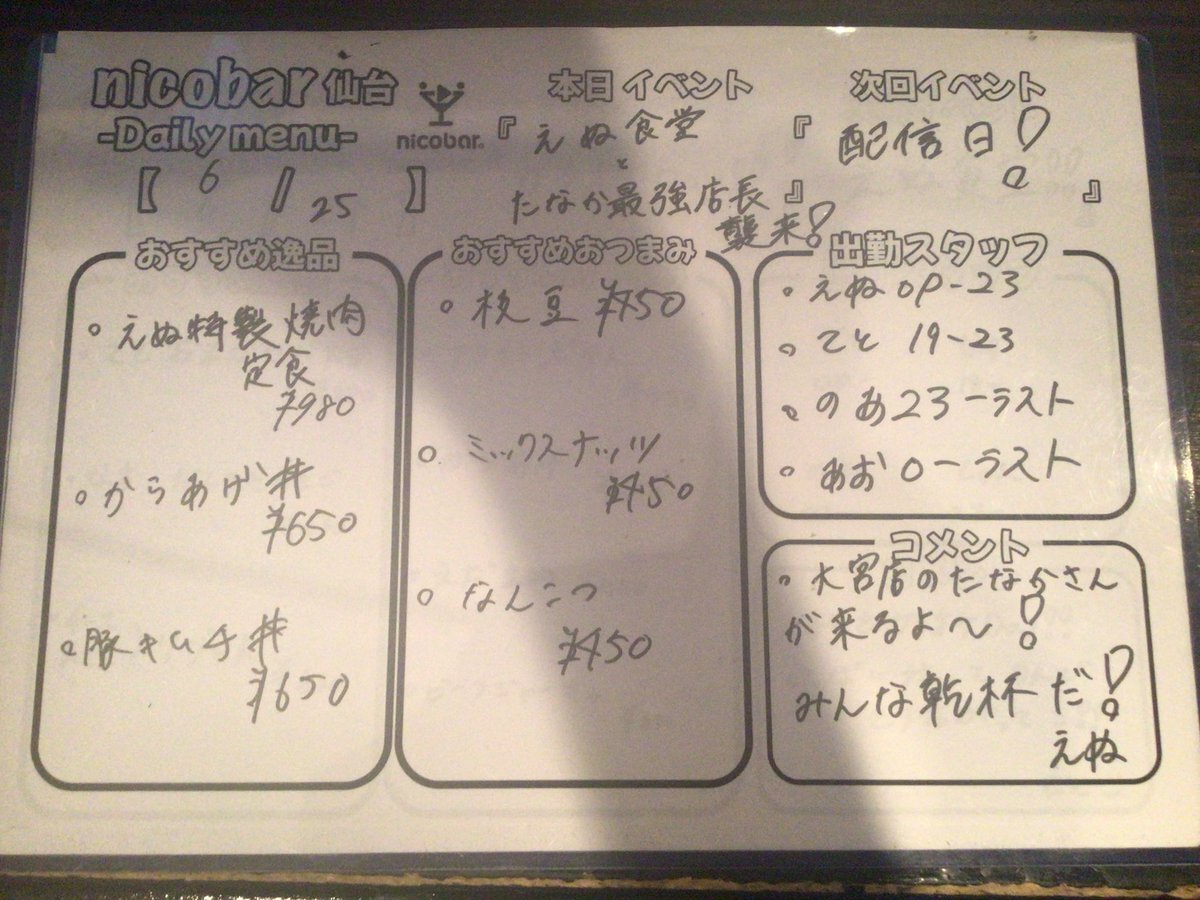 nicobar 仙台
-Daily menu-
nicobar.
【 6 / 25 】
本日イベント
『えぬ食堂
と
たなか最強店長』
襲来!
次回イベント
『配信日!』
おすすめ逸品
○ えぬ特製焼肉
定食
¥980
○ からあげ丼
¥650
○ 豚キムチ丼
¥650
おすすめおつまみ
○ 枝豆 ¥450
○ ミックスナッツ
¥450
○ なんこつ
¥450
出勤スタッフ
○ えぬ op-23
○ てと 19-23
○ のあ 23-ラスト
○ あお 0-ラスト
コメント
○ 大宮店のたなかさん
が来るよ〜!
みんな乾杯だ!
えぬ